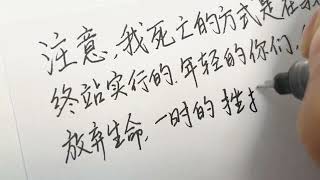 注意,我死亡的方式是在
终站实行的.年轻的你们,
放弃生命,一时的挫